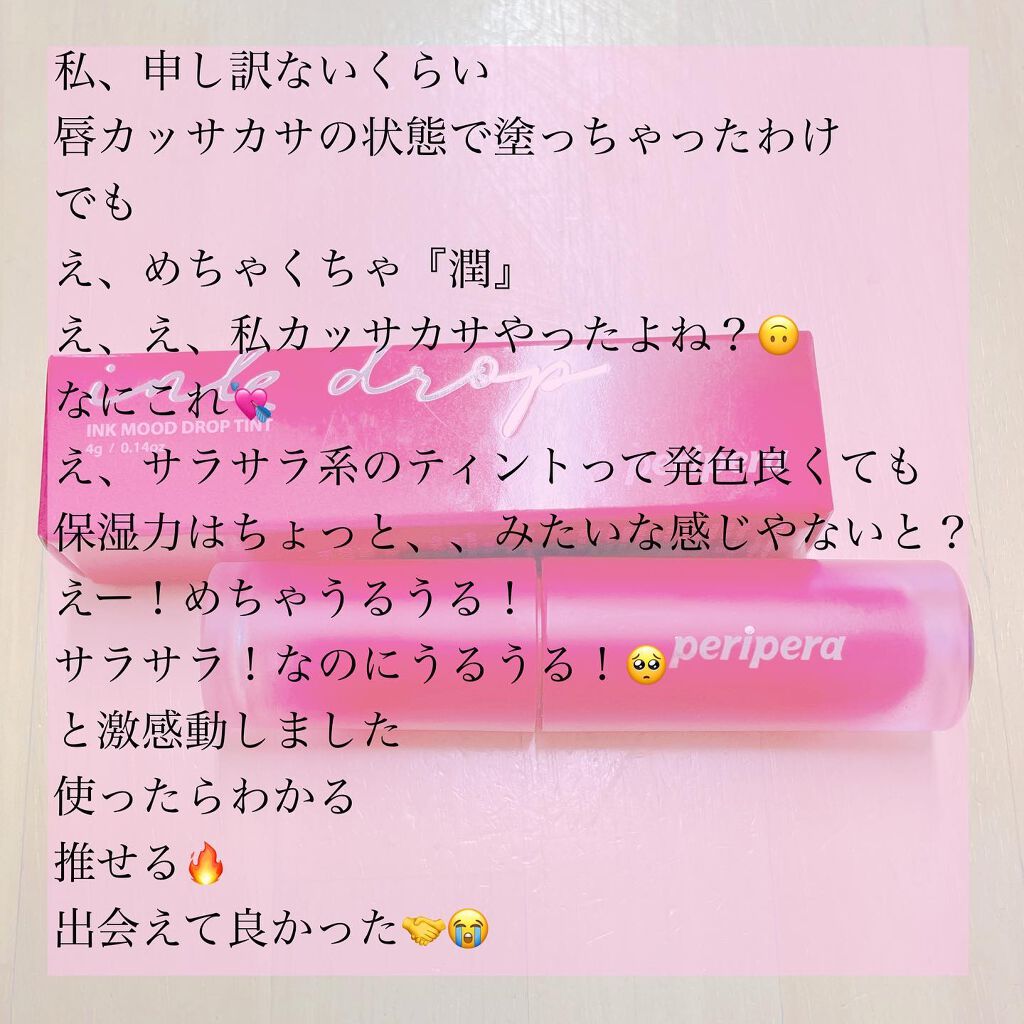 私、申し訳ないくらい
唇カッサカサの状態で塗っちゃったわけ
でも
え、めちゃくちゃ『潤』
え、え、私カッサカサやったよね？🙃
ink drop
なにこれ💘
INK MOOD DROP TINT
4g / 0.14oz
peripera
え、サラサラ系のティントって発色良くても
保湿力はちょっと、、みたいな感じやないと？
えー！めちゃうるうる！
peripera
サラサラ！なのにうるうる！🥺
と激感動しました
使ったらわかる
推せる🔥
出会えて良かった🤝😭